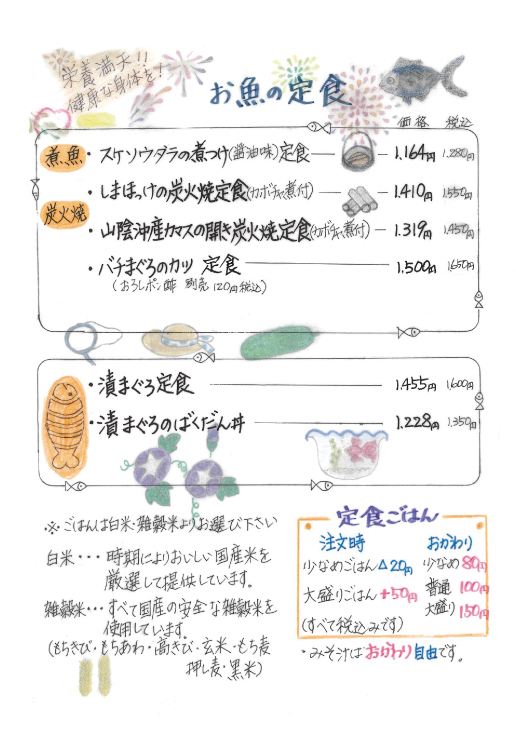 栄養満天!!
健康な身体を!
お魚の定食
価格 税込
煮魚 ・スケソウダラの煮つけ(醤油味)定食 1.164円 1.280円
・しまほっけの炭火焼定食(カボチャ煮付) 1.410円 1.550円
炭火焼
・山陰沖産カマスの開き炭火焼定食(カボチャ煮付) 1.319円 1.450円
・バチまぐろのカツ 定食 1.500円 1650円
(おろしポン酢 別売 120円税込)
・漬まぐろ定食 1.455円 1,600円
・漬まぐろのばくだん丼 1.228円 1.350円
※ごはんは白米・雑穀米よりお選び下さい
白米・・・時期によりおいしい国産米を
厳選して提供しています。
雑穀米・・・すべて国産の安全な雑穀米を
使用しています。
(もちきび・もちあわ・高きび・玄米・もち麦
押し麦・黒米)
定食ごはん
注文時 おかわり
少なめごはん △20円 少なめ 80円
大盛りごはん +50円 普通 100円
大盛り 150円
(すべて税込みです)
・みそ汁はおかわり自由です。